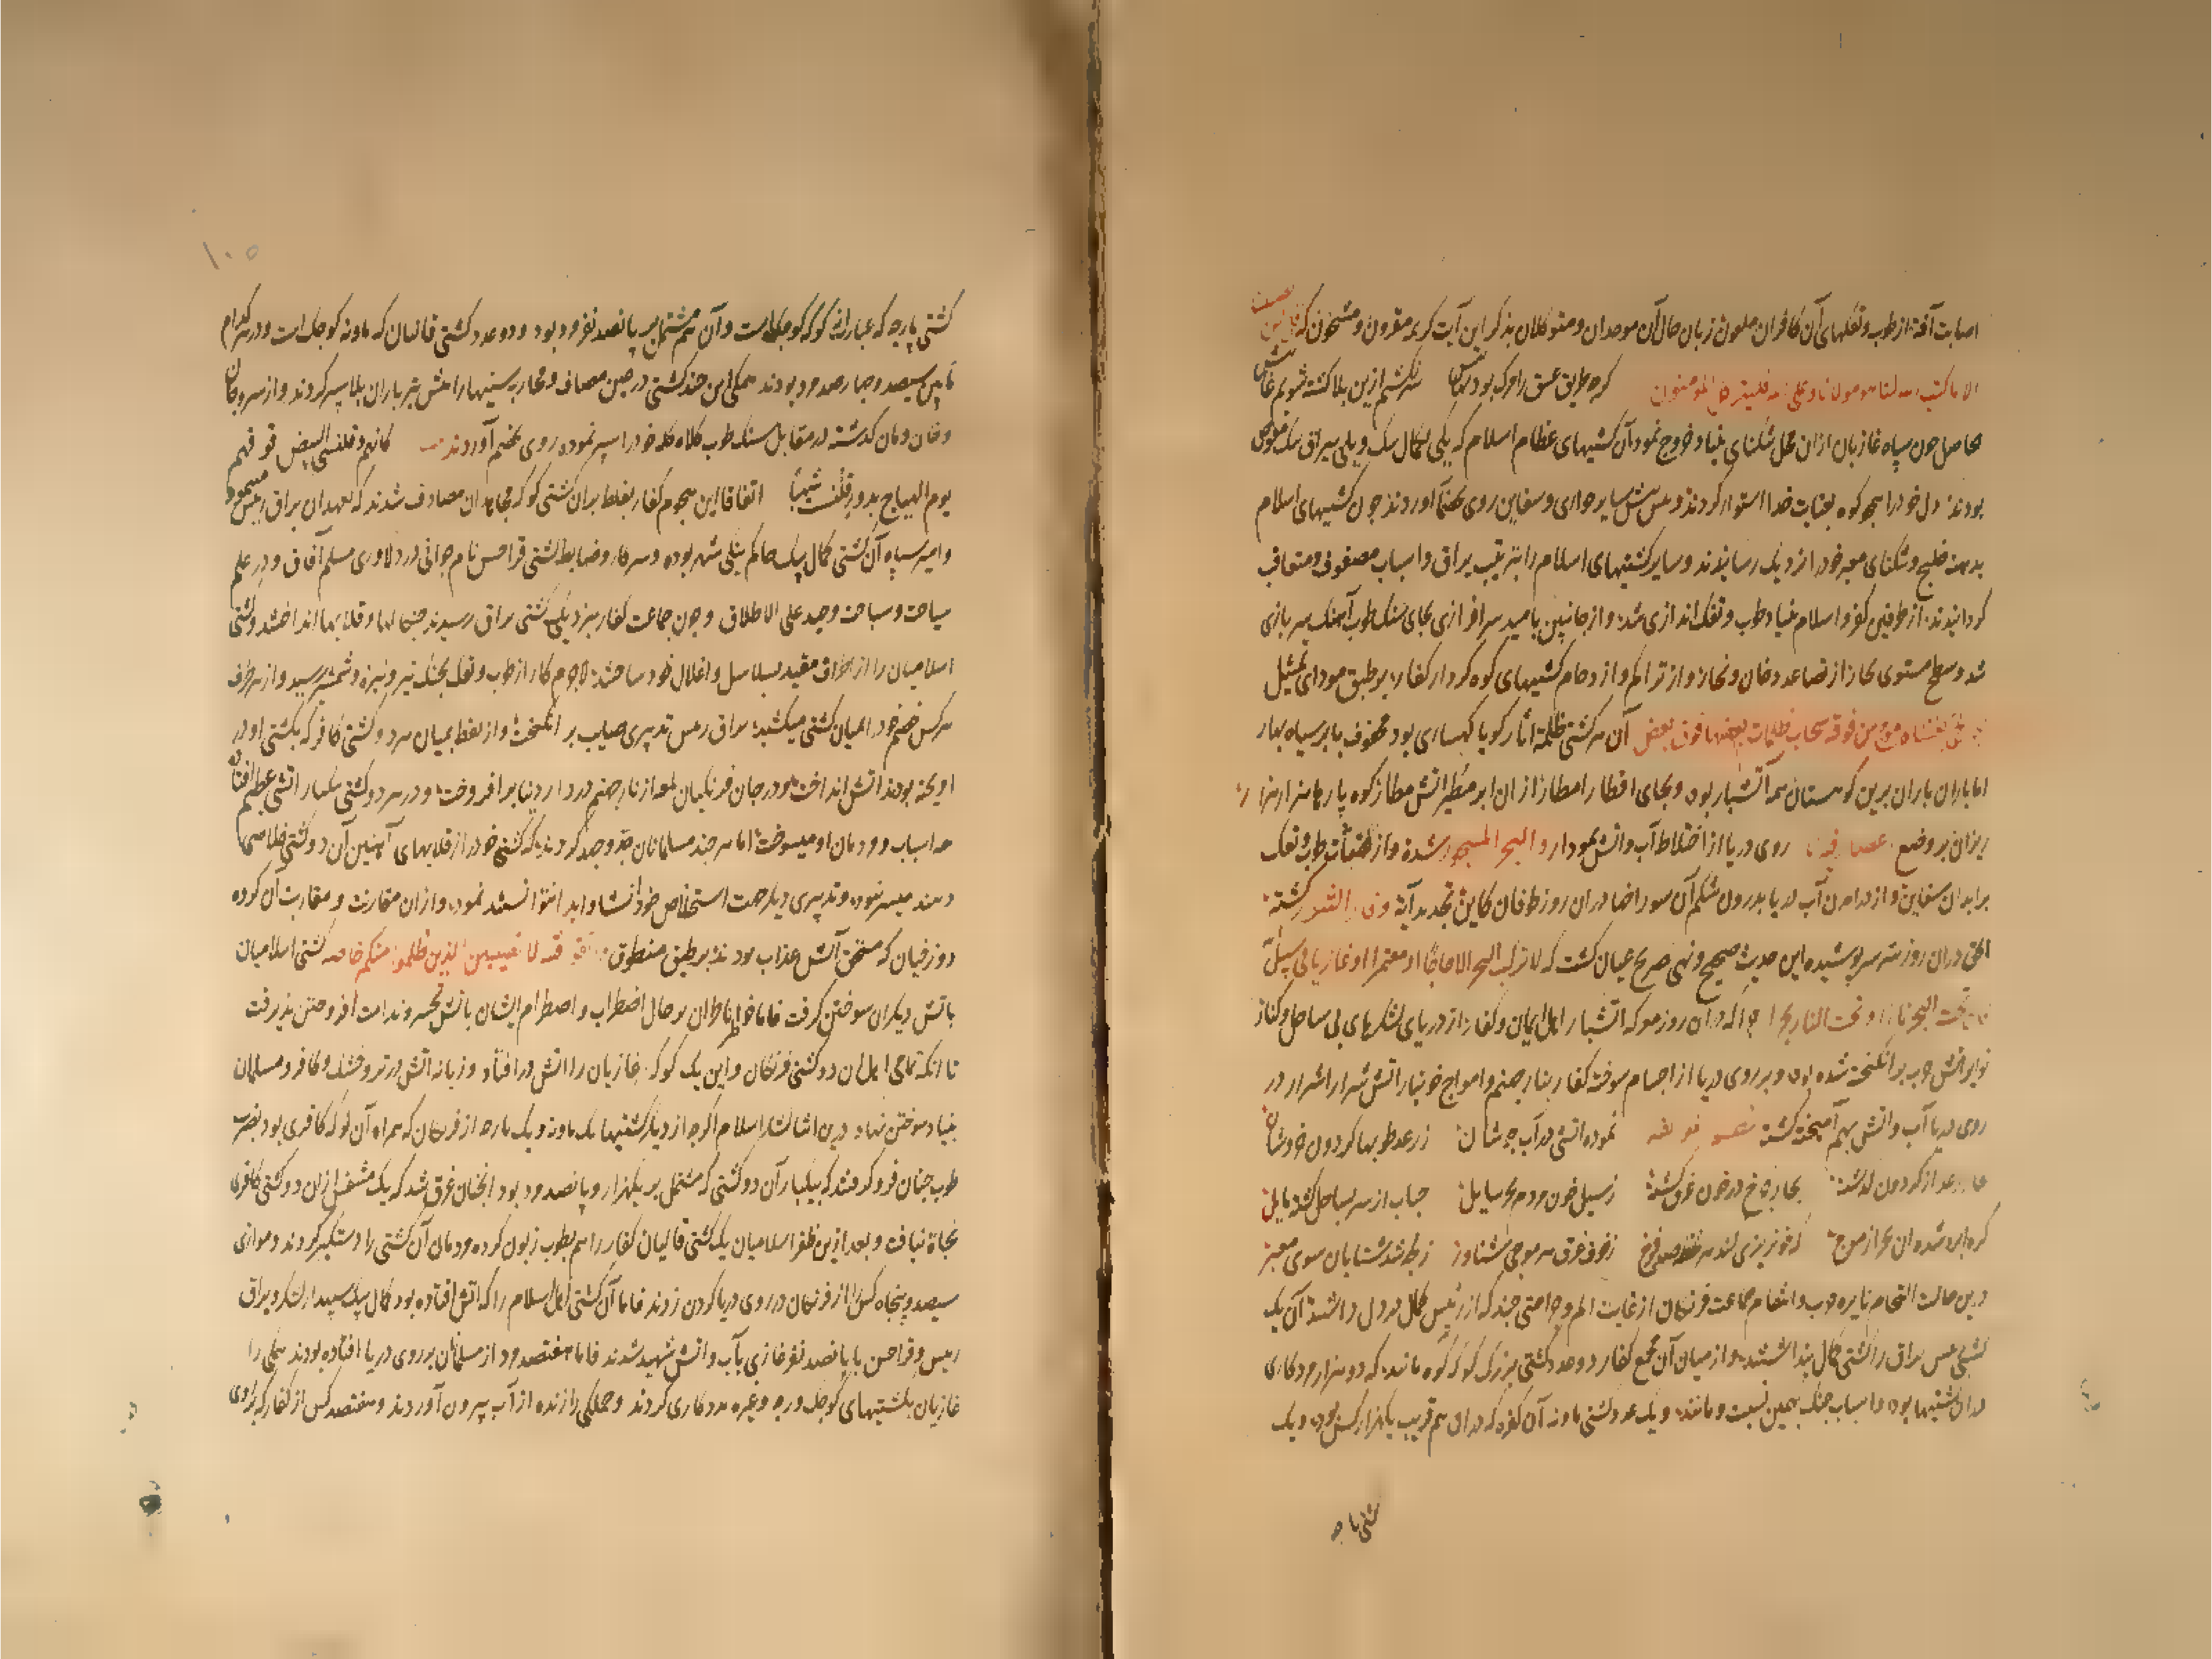 اصابت آفت از طوب و تفنکهای آن کافران ملعون زبان حال آن موحدان و متوکلان بذکر این آیت کریمه مقرون و مشحون که قل لن یصیبنا
الا ما کتب الله لنا هو مولانا و علی الله فلیتوکل المومنون کرچه طریق عشق را مرک بود
حاصل چون سپاه غازیان ازان محل تنکنای بنیاد خروج نمود آن کشتیهای عظام اسلام که یکی بکمال بیک و یکی ببراق بیک مفوض
بودند دل خود را همچو کوه بعنایت خدا استوار کردند و پیش پیش سایر جواری و سفاین روی بجنک آوردند چون کشتیهای اسلام
بدهنه خلیج و تنکنای معبر خود را نزدیک رسانیدند و سایر کشتیهای اسلام را بترتیب یراق و اسباب مصفوف و متعاقب
کردانیدند از طرفین کفر و اسلام بنیاد طوب و تفنک اندازی شد و از جانبین بامید سرافرازی بجای سنک طوب آهنک سربازی
شد و سطح مستوی بحار از تصاعد دخان و بخار و از تراکم و ازدحام کشتیهای کوه کردار کفار بر طبق مودای تمثیل
یغشاه موج من فوقه سحاب ظلمات بعضها فوق بعض آن هر کشتی ظلمة آثار کویا کهساری بود محفوف بابر سیاه بهار
اما باران باران برین کوهستان همه آتشبار بود و بجای اقطار امطار از ان ابر مطیر آتش مطار کوه پارها هزار هزار
ریزان بر وضع روی دریا از اختلاط آب و آتش نمودار و البحر المسجور شده و از طوب و تفنک
بر ابدان سفاین و از درامدن آب دریا بدرون شکم آن سوراخها دران روز طوفان کاین تجدید آیة و فار التنور کشته
الحق دران روز سر سر پوشیده این حدیث صحیح و نهی صریح عیان کشت که لا ترکب البحر الا حاجا او معتمرا او غازیا فی سبیل
تحت البحر نارا و تحت النار بحرا چرا که دران روز معرکه آتشبار اهل ایمان و کفار از دریای لشکرهای بی ساحل و کنار
نوایر آتش حرب برانکیخته شده بود و بر روی دریا از اجسام سوخته کفار بنار جهنم و امواج خونبار آتش شرار اشرار در
روی دریا آب و آتش بهم آمیخته کشته نموده آتشی در آب جوشان ز رعد طوبها کردون خروشان
بخار چرخ در خون غرق کشته ز سیل خون مردم بحر سایل حباب از سر بساحل کشته مایل
کره ابر شده ان بحر از موج ز خوف غرق هر موجی شناور ز بط شد شتابان سوی معبر
درین حالت التحام نایره حرب و انتقام جماعت فرنکان از غایت الم و جراحتی چند که از رئیس کمال در دل داشتند آن یک
کشتی رئیس براق را کشتی کمال پنداشتند و از میان آن مجمع کفار دو عدد کشتی بزرک کوکه کوه مانند که دو هزار مرد کاری
دران کشتیها بود و اسباب جنک بهمین نسبت و مانند و یک عدد کشتی ماونه آن کفره که دران هم قریب یکهزار کس بود و یک
کشتی پارچه
۱۰۵
کشتی پارچه که عبارت از کوکه کوچک است و آن هم مشتمل بر پانصد نفر مرد بود و دو عدد کشتی قالیان که ماونه کوچک است و در هر کدام
مابین سیصد و چهارصد مرد بودند همکی این چند کشتی در حین مصاف و محاربه سینهارا پیش تیر باران بلا سپر کردند و از سر و جان
و خان و مان کذشته در مقابل سنک طوب کلاه کله خود را سپر نموده روی بخصم آوردند کانهم و قلنسی البیض فوقهم
یوم الهیاج بدور قلنست شهبا اتفاقا این هجوم کفار بغلط بران کشتی کوکه مجاهدان مصادف شدند که بعهده ان براق رئیس معهود
و امیر سپاه آن کشتی کمال بیک حاکم ینکی شهر بوده و سرکار و ضابط کشتی قراحسن نام جوانی در دلاوری مسلم آفاق و در علم
سیاحت و سباحت وحید علی الاطلاق و چون جماعت کفار بنزدیکی کشتی براق رسیدند چنکالها و قلابها انداختند و کشتی
اسلامیان را از اطراف مقید بسلاسل و اغلال خود ساختند لاجرم کار از طوب و تفنک بجنک تیر و نیزه و شمشیر رسید و از هر طرف
هر کس خصم خود را بمیان کشتی میکشید براق رئیس تدبیری صایب بر انکیخت و از نفط بمیان هر دو کشتی کافر که بکشتی او در
اویخته بودند آتش انداخت و در جان فرنکیان لمعه از نار جهنم در دار دنیا بر افروخت و در هر دو کشتی بیکبار آتشی عظیم افتاد
همه اسباب و مردمان او میسوخت اما هر چند مسلمانان جد و جهد کردند که کشتی خود را از قلابهای آهنین آن دو کشتی خلاصی
دهند میسر نبود و تدبیری دیکر جهت استخلاص خود انشا و ابدا نتوانستند نمود و از ان مقارنت و مقاربت آن کروه
دوزخیان که مستحق آتش عذاب بودند بر طبق منطوق و اتقوا فتنة لا تصیبن الذین ظلموا منکم خاصة کشتی اسلامیان
باتش دیکران سوختن کرفت فاما خواطر ناظران بر حال اضطراب و اضطرام ایشان باتش تحسر و ندامت افروختن پذیرفت
تا آنکه تمامی اهل آن دو کشتی فرنکان و این یک کوکه غازیان را آتش در افتاد و زبانه آتش در تر و خشک و کافر و مسلمان
بنیاد سوختن نهاد درین اثنا لشکر اسلام اکرچه از دیکر کشتیها یک ماونه و یک بارچه از فرنکان که همراه آن کوکه کافری بود بضرب
طوب چنان فرو کرفتند که بیکبار آن دو کشتی که مشتمل بر یکهزار و پانصد مرد بود آنچنان غرق شد که یک متنفس از ان دو کشتی کافری
نجاة نیافت و بعد ازین ظفر اسلامیان یک کشتی قالیان کفار را هم بطوب زبون کرده مردمان آن کشتی را دستکیر کردند و موازی
سیصد و پنجاه کس را از فرنکان در روی دریا کردن زدند فاما آن کشتی اهل اسلام را که آتش افتاده بود کمال بیک سپهدار لشکر و براق
رئیس و قراحسن با پانصد نفر غازی بآب و آتش شهید شدند فاما هفتصد مرد از مسلمانان بر روی دریا افتاده بودند همکی را
غازیان بکشتیهای کوچک و غیره مددکاری کردند و جملکی را زنده از آب بیرون آوردند و هفتصد کس از کفار که بر روی